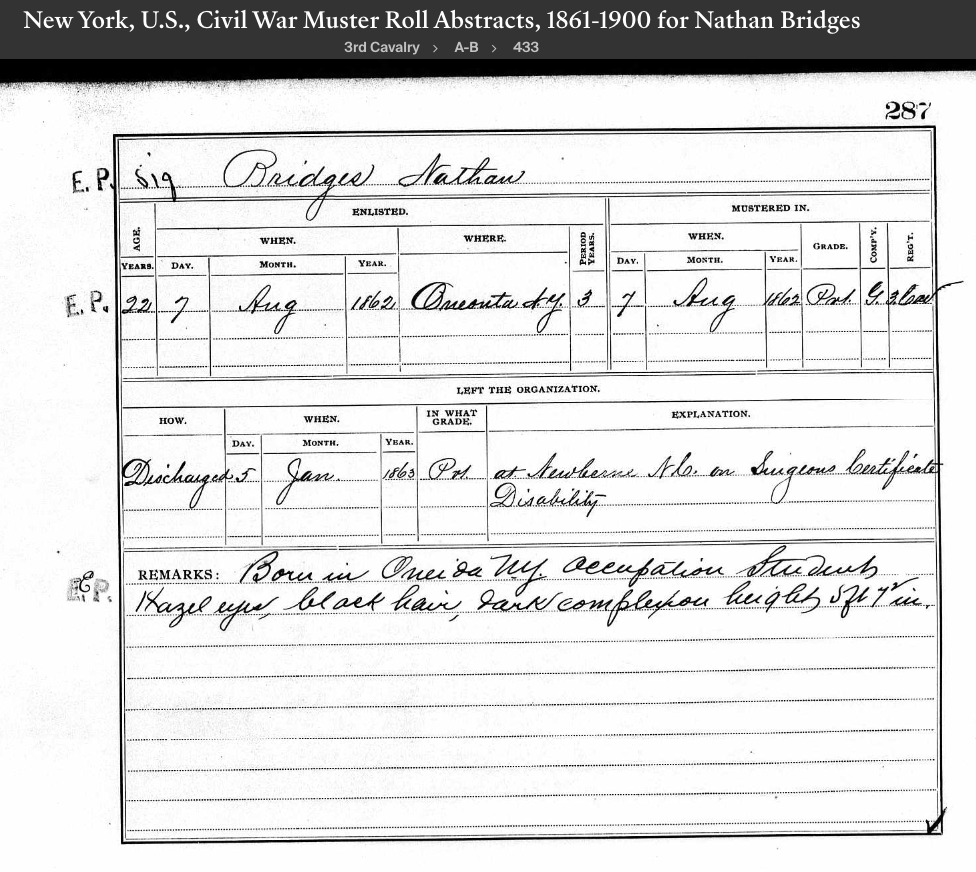 New York, U.S., Civil War Muster Roll Abstracts, 1861-1900 for Nathan Bridges
3rd Cavalry > A-B > 433
287
E. P. Sig Bridges Nathan
ENLISTED. MUSTERED IN.
AGE. WHEN. WHERE. PERIOD YEARS. WHEN. GRADE. COMP'Y. REG'T.
YEARS. DAY. MONTH. YEAR. DAY. MONTH. YEAR.
E. P. 22 7 Aug 1862 Oneonta N.Y. 3 7 Aug 1862 Pvt. G. 3 Cav
LEFT THE ORGANIZATION.
HOW. WHEN. IN WHAT GRADE. EXPLANATION.
DAY. MONTH. YEAR.
Discharged 5 Jan. 1863 Pvt. at Newberne N.C. on Surgeons Certificate
Disability
E.P. REMARKS: Born in Oneida NY. Occupation Student,
Hazel eyes, black hair, dark complexion height, 5ft 7 in.